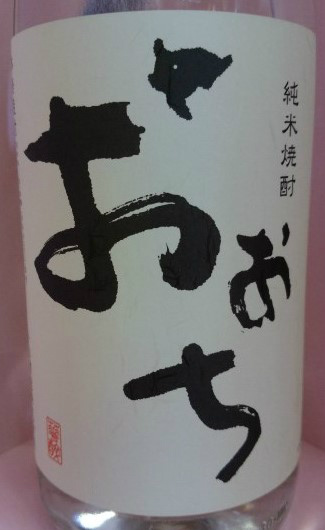 純米焼酎
おおち